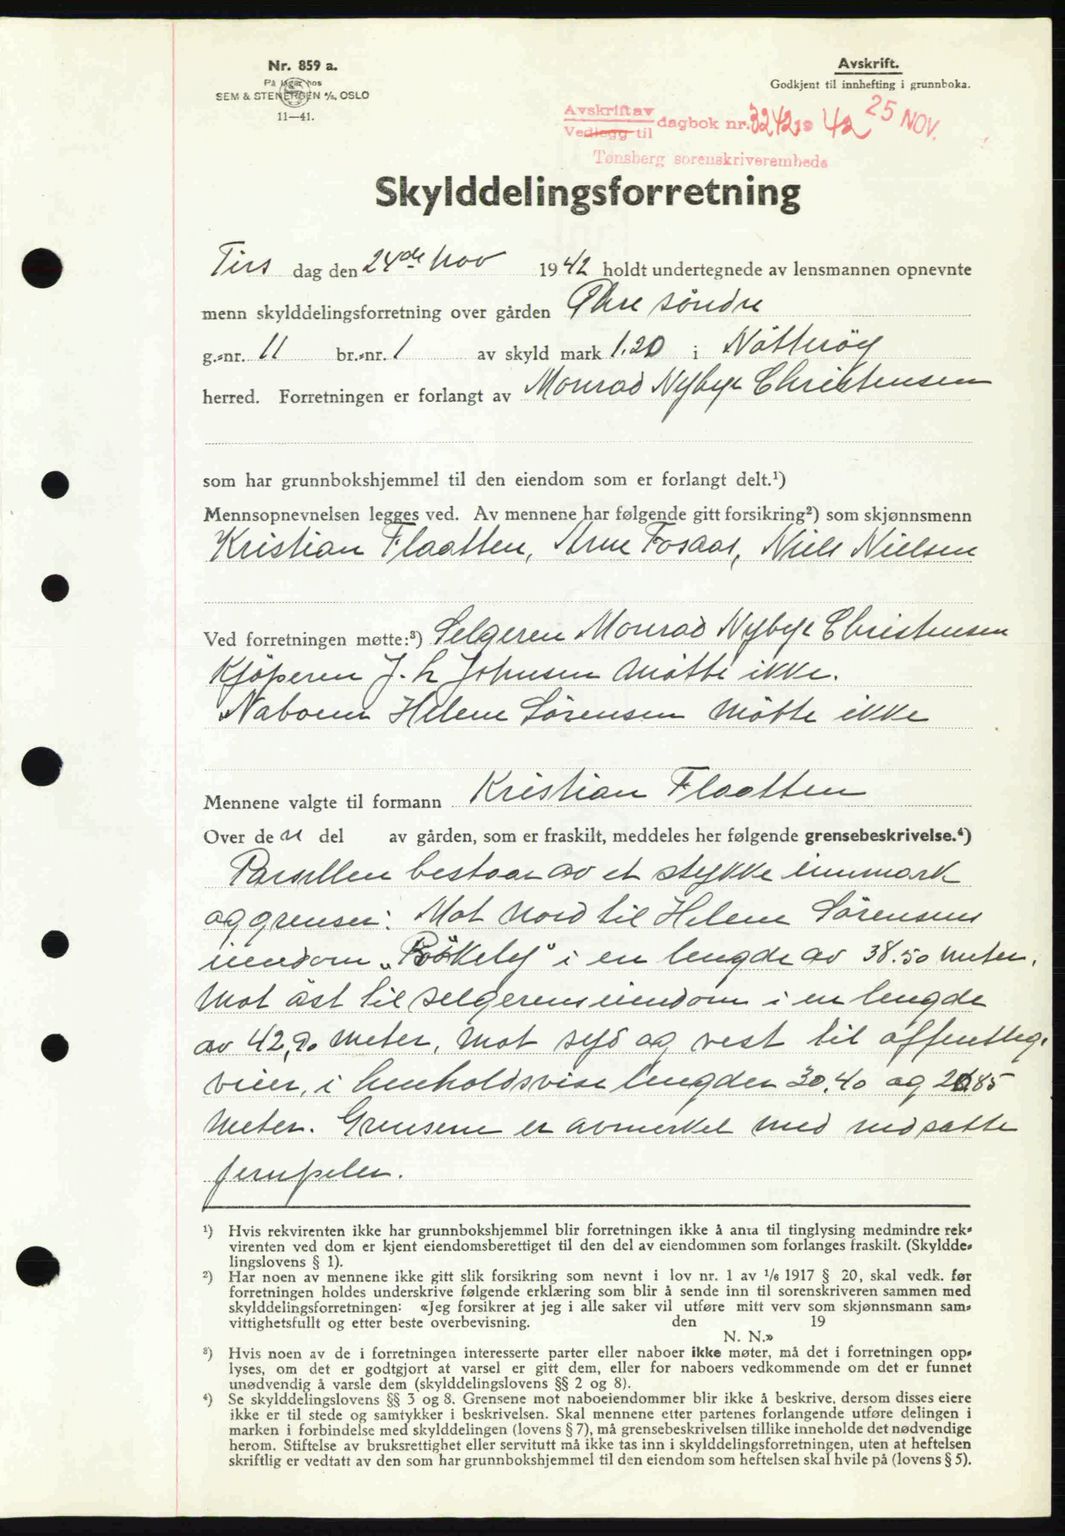 Nr. 859 a.
På lager hos
SEM & STENERSEN A/S, OSLO
11—41.
Avskrift.
Godkjent til innhefting i grunnboka.
Avskrift av
Vedlegg til dagbok nr. 3242 19 42 25 NOV.
Tønsberg sorenskriverembede
Skylddelingsforretning
Tirs dag den 24de Nov 1942 holdt undertegnede av lensmannen opnevnte
menn skylddelingsforretning over gården Øhre söndre
g.-nr. 11 br.-nr. 1 av skyld mark 1.20 i Nötteröy
herred. Forretningen er forlangt av Monrad Nybye Christensen
som har grunnbokshjemmel til den eiendom som er forlangt delt.¹)
Mennsopnevnelsen legges ved. Av mennene har følgende gitt forsikring²) som skjønnsmenn
Kristian Flaatten, Arne Fosaas, Niels Nielsen
Ved forretningen møtte:³) Selgeren Monrad Nybye Christensen
Kjöperen J. L Johnsen mötte ikke.
Naboen Helene Sörensen mötte ikke
Mennene valgte til formann Kristian Flaatten
Over de n del av gården, som er fraskilt, meddeles her følgende grensebeskrivelse.⁴)
Parsellen bestaar av et stykke innmark
og grenser: Mot Nord til Helene Sörensens
eiendom „Bökely" i en lengde av 38.50 meter.
Mot öst til selgerens eiendom i en lengde
av 42,90 meter, mot syd og vest til offentlig.
veier, i henholdsvise lengder 30,40 og 85
meter. Grensene er avmerket med nedsatte
jernpeler.
¹) Hvis rekvirenten ikke har grunnbokshjemmel blir forretningen ikke å anta til tinglysing medmindre rek-
virenten ved dom er kjent eiendomsberettiget til den del av eiendommen som forlanges fraskilt. (Skyldde-
lingslovens § 1).
²) Har noen av mennene ikke gitt slik forsikring som nevnt i lov nr. 1 av ¹/₆ 1917 § 20, skal vedk. før
forretningen holdes underskrive følgende erklæring som blir å sende inn til sorenskriveren sammen med
skylddelingsforretningen: «Jeg forsikrer at jeg i alle saker vil utføre mitt verv som skjønnsmann sam-
vittighetsfullt og etter beste overbevisning. den 19
N. N.»
³) Hvis noen av de i forretningen interesserte parter eller naboer ikke møter, må det i forretningen opp-
lyses, om det er godtgjort at varsel er gitt dem, eller for naboers vedkommende om det er funnet
unødvendig å varsle dem (skylddelingslovens §§ 2 og 8).
⁴) Se skylddelingslovens §§ 3 og 8. Grensene mot naboeiendommer blir ikke å beskrive, dersom disses eiere
ikke er til stede og samtykker i beskrivelsen. Skal mennene etter partenes forlangende utføre delingen i
marken i forbindelse med skylddelingen (lovens § 7), må grensebeskrivelsen tillike inneholde det nødvendige
herom. Stiftelse av bruksrettighet eller servitutt må ikke tas inn i skylddelingsforretningen, uten at heftelsen
skriftlig er vedtatt av den som har grunnbokshjemmel til den eiendom som heftelsen skal hvile på (lovens § 5).